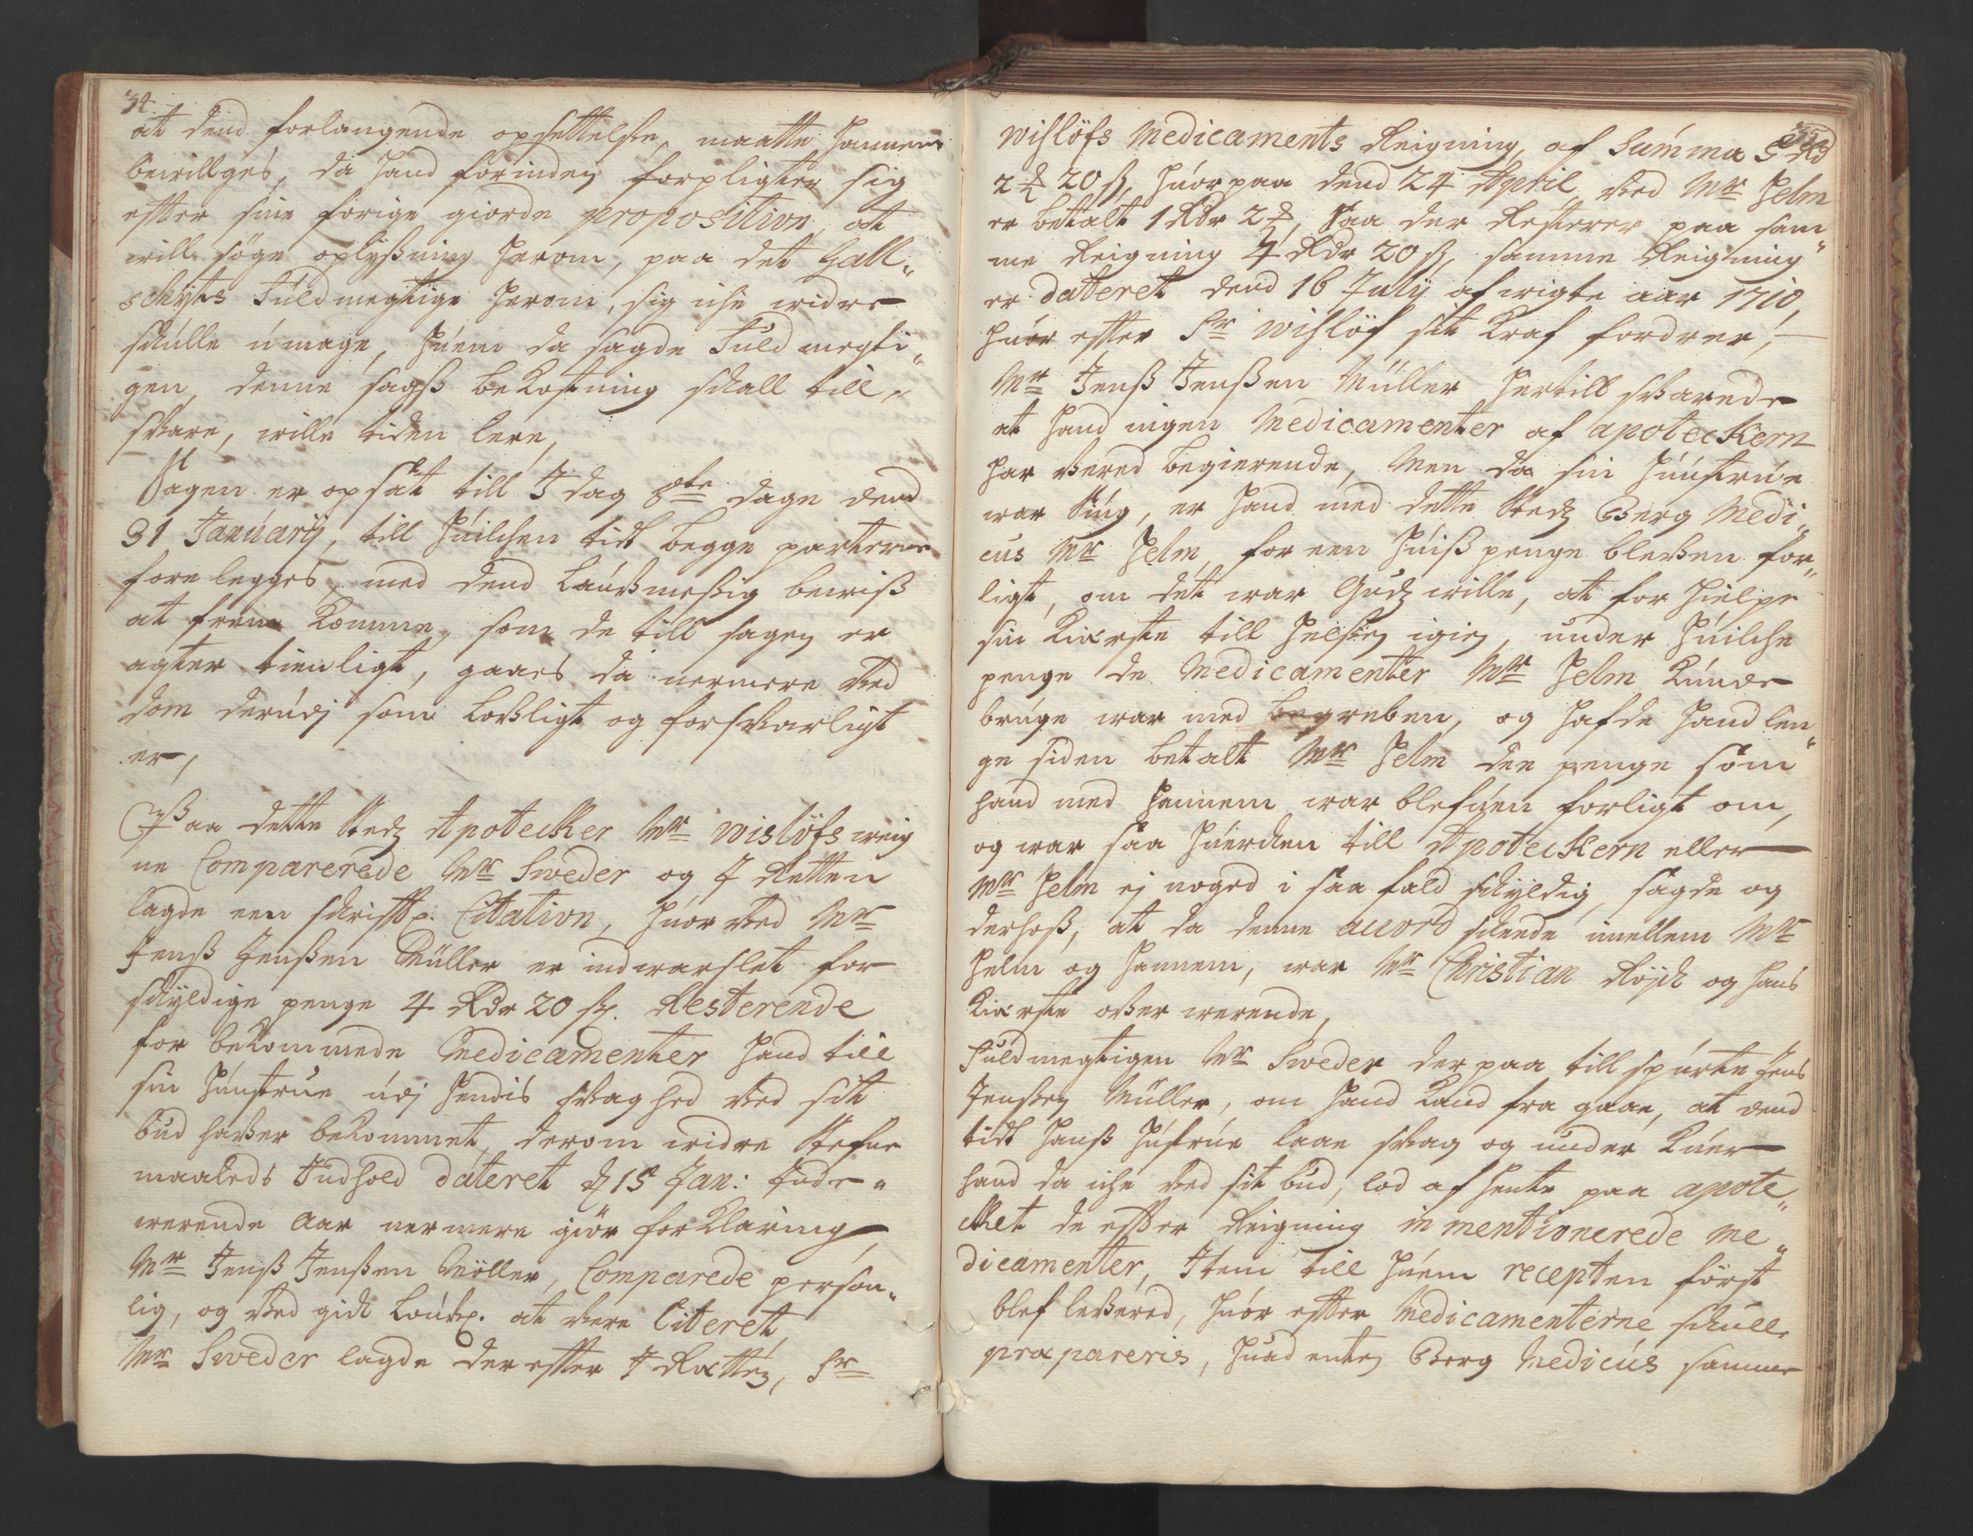 34.
at dend forlangende opsettelse, maatte hannem
bevillges, da hand forinden forpligter sig
efter sine forige giorde proposition, at
vill søge oplysning herom, paa det Gall-
schyts Fuldmegtige herom, sig iche vidre
skulle umage, huem da sagde Fuldmegti-
gen, denne sagß bekostning skall till-
svare, wille tiden lere,
Sagen er opsat till I dag 8te dage dend
31 January, till huilchen tid begge parterne
fore legges, med dend laugmesßig beviß
at frem komme, som de till sagen er
agter tienligt, gaaes da nermere ved
dom derudj som lovligt og forsvarligt
er,
Paa dette stedz Apotecker Mr wisløfs weig
ne Comparerede Mr Sweder og I Retten
lagde een skriftl: Citation, huor ved Mr
Jenß Jenßen Müller er indvarslet for
skyldige penge 4 Rdr 20 s. Resterende
for bekommede Medicamenter hand till
sin hustrue udj hendis svaghed ved sit
bud hafver bekommet, derom vidre stefne
maaleds Indhold dateret d 15 Jan: Inde-
werende Aar nermere giør forklaring,
Mr Jenß Jenßen Møller, Comparede person-
lig, og ved gich lovl. at vere Citeret,
Mr Sweder lagde der efter I Rætten, Sr
35
wisløfs Medicaments Reigning, af Summa 5 Rd
2 20 s, huorpaa dend 24 April ved Mr Helm
er betalt 1 Rdr 2, saa der Resterer paa sam
me Reigning 4 Rdr 20 s, samme Reigning
er dateret dend 16 July afvigte aar 1710,
huor efter Sr wisløf sit Kraf fordrer,
Mr Jenß Jenßen Müller hertill svarede
at hand ingen Medicamenter af apoteckern
har vered begierende, Men da sin hustrue
war siug, er hand med dette stedz Berg Medi-
cus Mr Helm for een huiß penge bleven for-
ligt, om det war Gudz wille, at for hielpe
sin Kierste till helsen igien, under huilche
penge de Medicamenter Mr Helm kunde
bruge war med begreben, og hafde hand len
ge siden betalt Mr Helm dee penge som
hand med hannem war blefuen forligt om,
og war saa huerchen till Apoteckern eller
Mr Helm ej noged i saa fald skyldig, sagde og
derhoß, at da denne accord skeede imellem Mr
Helm og hannem, war Mr Christian Røjch og hans
Kierste ofver werende,
Fuldmegtigen Mr Sweder der paa till spurte Jens
Jensen Müller, om hand kand fra gaae, at dend
tid hanß hustrue laae svag og under kuer
hand da iche ved sit bud, lod afhente paa apote
cket de efter Reigning in mentionerede Me
dicamenter, Item till huem recepten først
blef levered, huor efter Medicamenterne skulle
præpareris, huad enten Berg Medicus samme